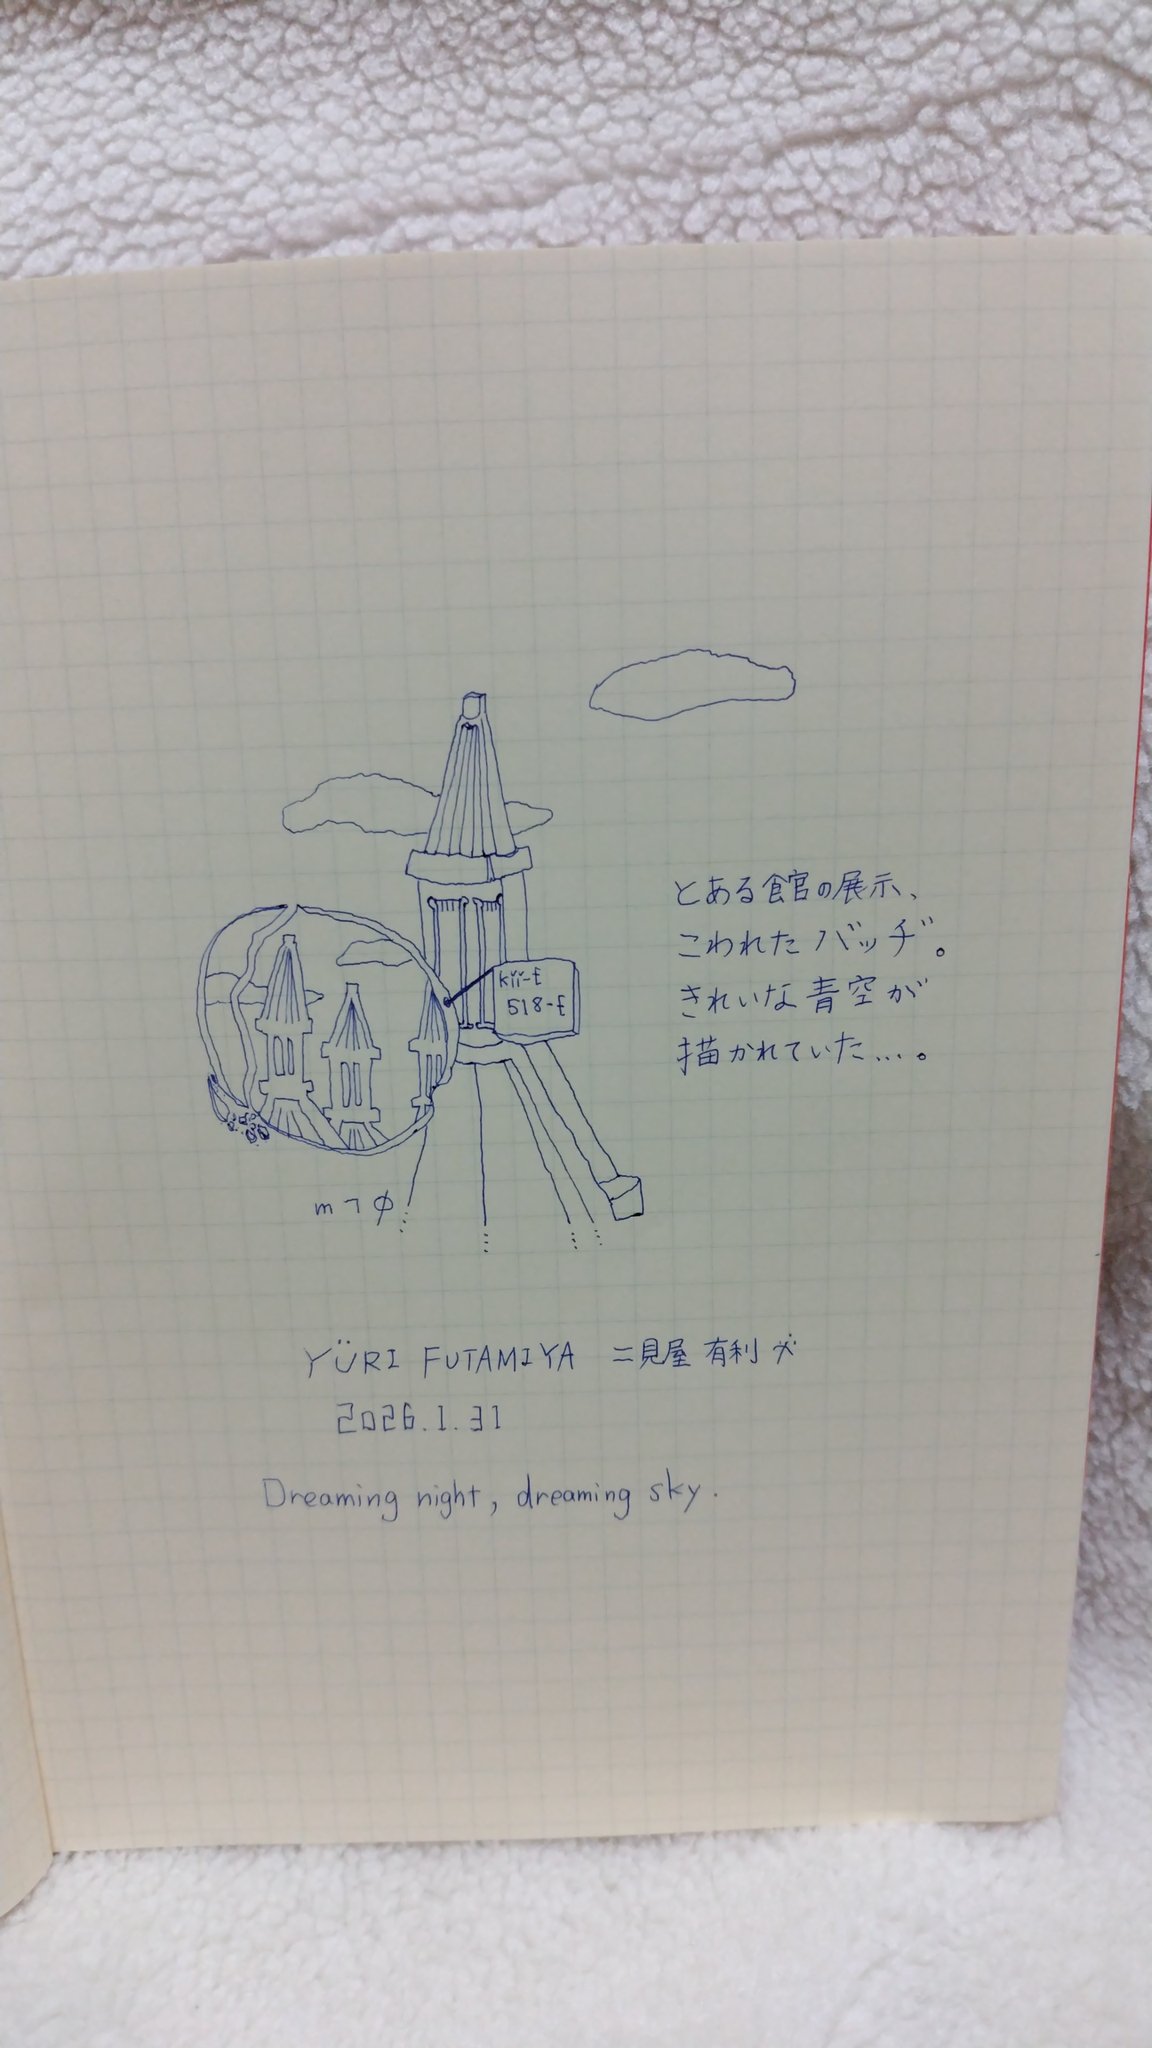 kïï-t
518-t
とある館の展示、
こわれたバッヂ。
きれいな青空が
描かれていた…。
YÜRI FUTAMIYA 二見屋 有利
2026.1.31
Dreaming night, dreaming sky.